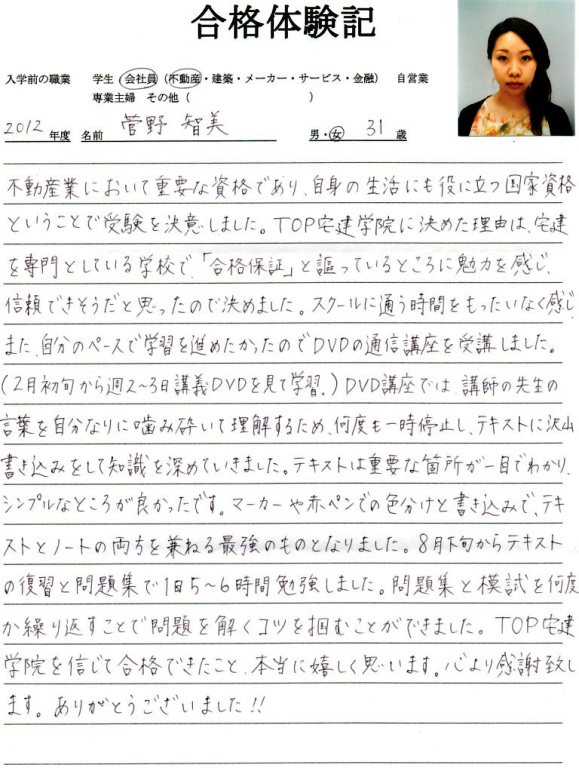 合格体験記
入学前の職業 学生 会社員 (不動産・建築・メーカー・サービス・金融) 自営業
専業主婦 その他 ( )
2012 年度 名前 菅野 智美 男・女 31 歳
不動産業において重要な資格であり、自身の生活にも役に立つ国家資格
ということで受験を決意しました。TOP宅建学院に決めた理由は、宅建
を専門としている学校で、「合格保証」と謳っているところに魅力を感じ、
信頼できそうだと思ったので決めました。スクールに通う時間をもったいなく感じ、
また、自分のペースで学習を進めたかったのでDVDの通信講座を受講しました。
(2月初旬から週2〜3日講義DVDを見て学習。)DVD講座では、講師の先生の
言葉を自分なりに噛み砕いて理解するため、何度も一時停止し、テキストに沢山
書き込みをして知識を深めていきました。テキストは重要な箇所が一目でわかり、
シンプルなところが良かったです。マーカーや赤ペンでの色分けと書き込みで、テキ
ストとノートの両方を兼ねる最強のものとなりました。8月下旬からテキスト
の復習と問題集で1日5〜6時間勉強しました。問題集と模試を何度
か繰り返すことで問題を解くコツを掴むことができました。TOP宅建
学院を信じて合格できたこと、本当に嬉しく思います。心より感謝致し
ます。ありがとうございました!!